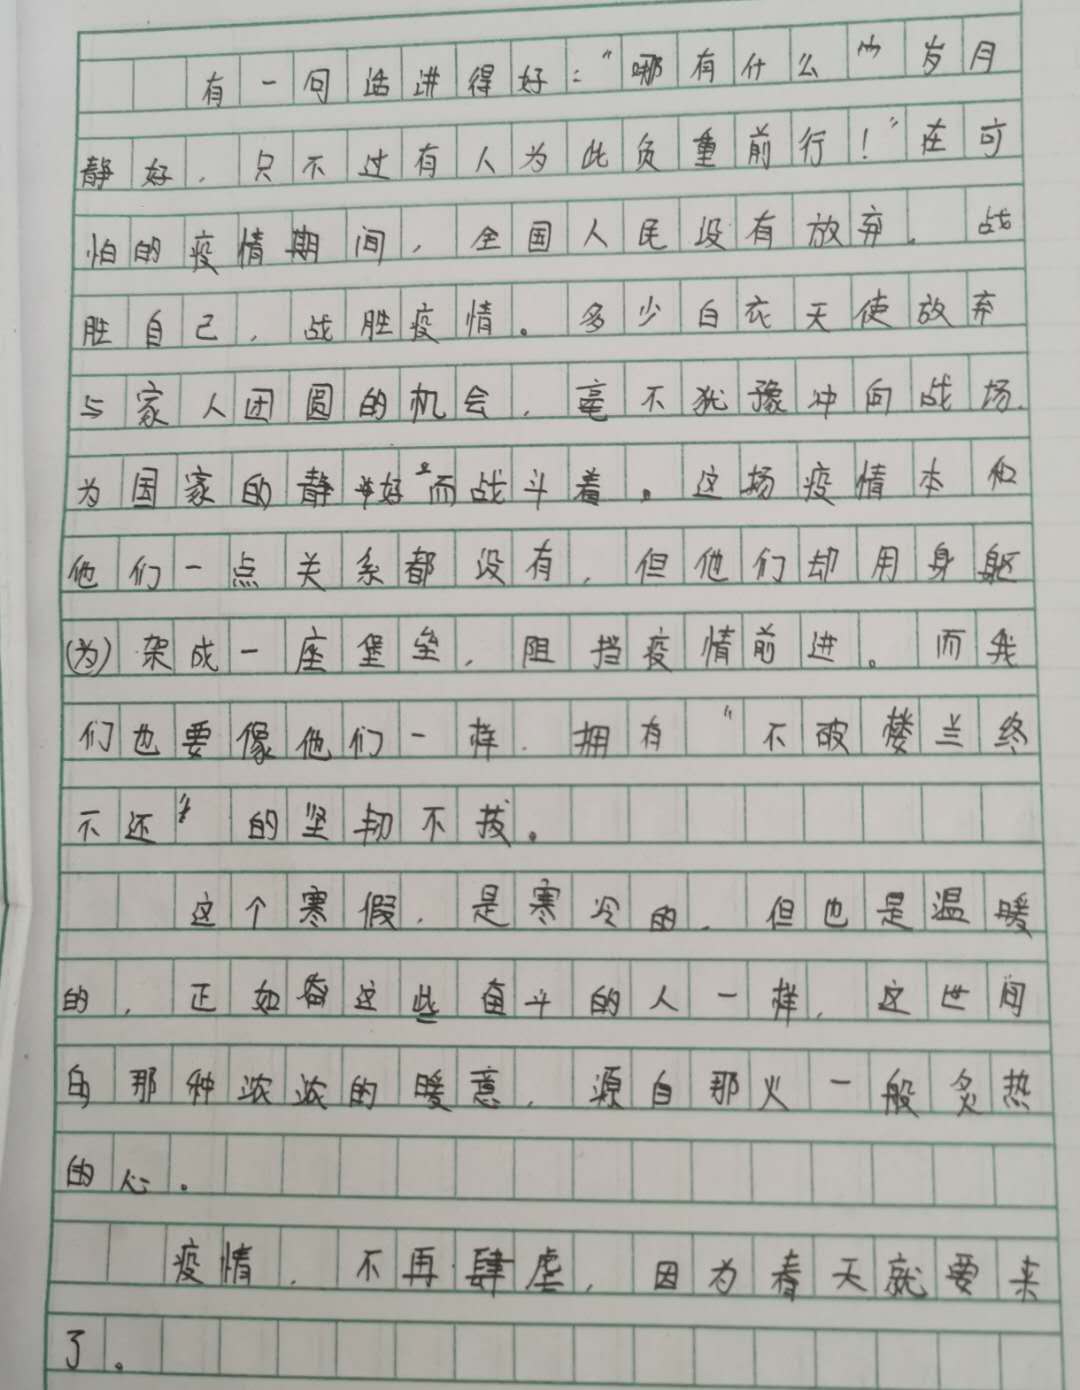 有一句话讲得好："哪有什么"岁月
静好，只不过有人为此负重前行！"在可
怕的疫情期间，全国人民没有放弃。战
胜自己，战胜疫情。多少白衣天使放弃
与家人团圆的机会，毫不犹豫冲向战场，
为国家的静好"而战斗着。这场疫情本和
他们一点关系都没有，但他们却用身躯
(为)架成一座堡垒，阻挡疫情前进。而我
们也要像他们一样，拥有"不破楼兰终
不还"的坚韧不拔。
这个寒假，是寒冷的，但也是温暖
的，正如奋这些奋斗的人一样，这世间
的那种浓浓的暖意，源自那火一般炙热
的心。
疫情，不再肆虐，因为春天就要来
了。